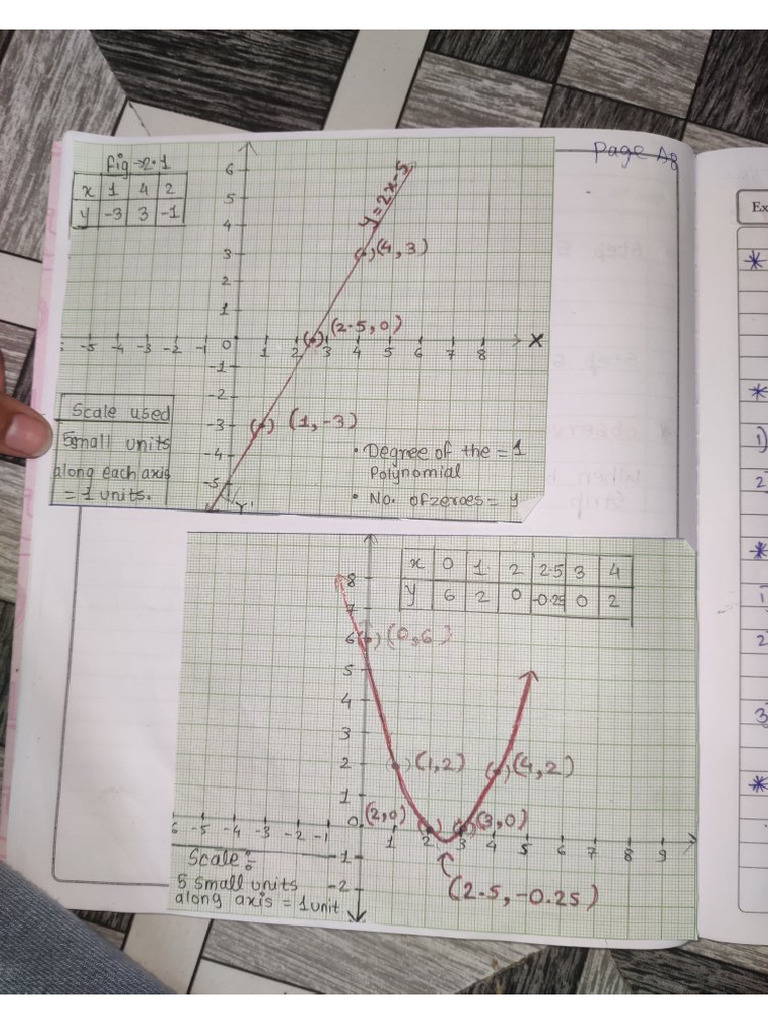 Page A8
fig → 2.1
x 1 4 2
y -3 3 -1
6
5
4
3
2
1
0
-1
-2
-3
-4
-5
Y'
-5 -4 -3 -2 -1 0 1 2 3 4 5 6 7 8 X
y = 2x-5
(4, 3)
(2.5, 0)
(1, -3)
Scale used
5 small units
along each axis
= 1 units.
• Degree of the = 1
Polynomial
• No. of zeroes =
x 0 1 2 2.5 3 4
y 6 2 0 -0.25 0 2
8
7
6
5
4
3
2
1
0
-1
-2
(0, 6)
(1, 2)
(4, 2)
(2, 0)
(3, 0)
-6 -5 -4 -3 -2 -1 1 2 3 4 5 6 7 8 9
(2.5, -0.25)
Scale:
5 small units
along axis = 1 unit
Ex
*
*
1)
2
*
1
2
3
*